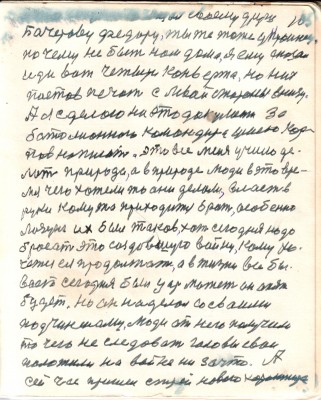 своему другу 10
Бачерову Федору, ты же тоже украинец,
почему не быть нам дома, я ему сказал
иди вот четыре конверта, но них
поставь печать с левай стороны внизу.
А я сделаю на это докумет За
батолионного командира
написать. Это все меня учило де-
лать природа, а в природе люди в это вре-
мя чего хотели то они делали, власть в
руки кому то приходит брат, особенно
их был таков, хот сегодня надо
бросать это войну, кому хо-
чется продолжать, а в жизни все бы-
вает сегодня был у их может он опят
будет. Но он наделал со своими
подчинеными, люди от него получили
то чего не следовать головы свои
положили на войне ни за что. А
сей час пришли строй нового характера